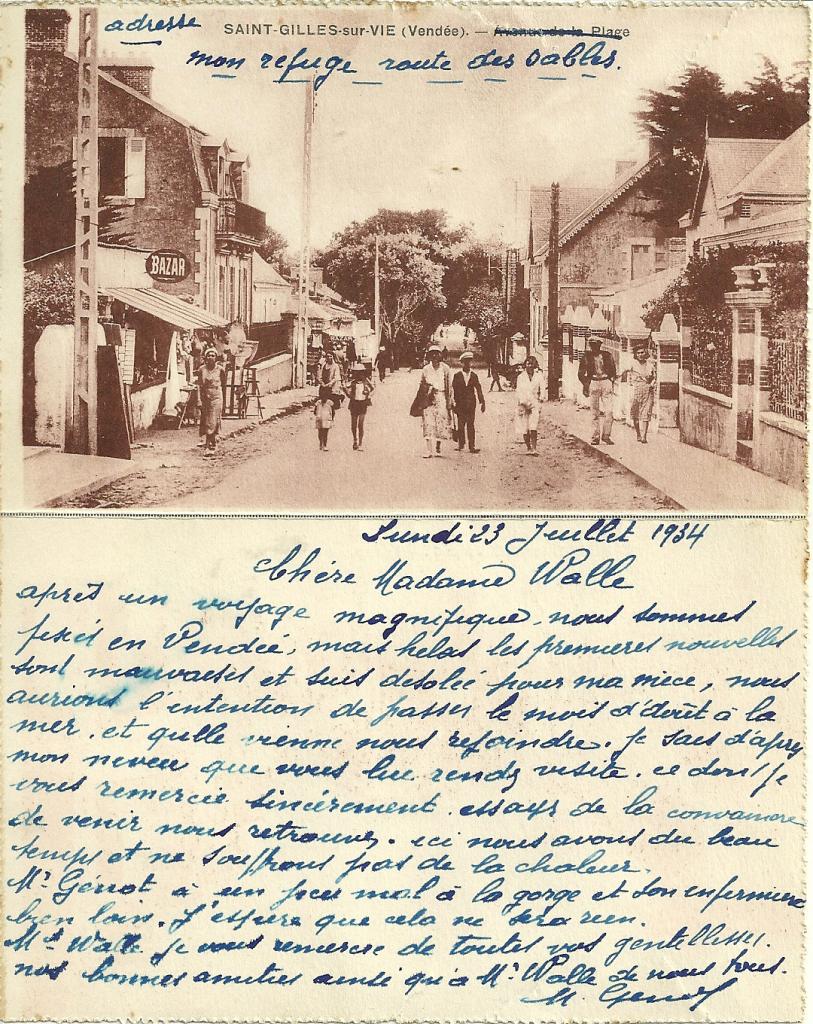 adresse
SAINT-GILLES-sur-VIE (Vendée). — Avenue de la Plage
mon refuge route des Sables.
BAZAR
Lundi 23 Juillet 1934
Chère Madame Walle
après un voyage magnifique, nous sommes
fixés en Vendée, mais helas les premieres nouvelles
sont mauvaises et suis désolée pour ma niece, nous
aurions l'intention de passer le mois d'Août à la
mer, et qu'elle vienne nous rejoindre. je sais d'après
mon neveu que vous lui rendez visite. ce dont je
vous remercie sincèrement. essayez de la convaincre
de venir nous retrouver. ici nous avons du beau
temps et ne souffrons pas de la chaleur.
Mr. à un peu mal à la gorge et son infirmiere
bien loin. J'espère que cela ne sera rien.
Me Walle je vous remercie de toutes vos gentillesses.
nos bonnes amities ainsi qu'a Mr. Walle de nous tous.
M.